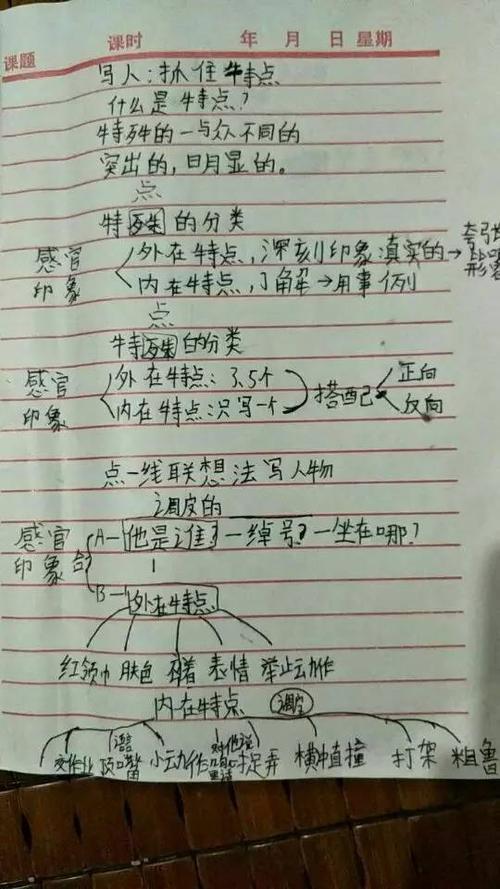 课题 课时 年 月 日 星期
写人:抓住特点
什么是特点?
特殊的一与众不同的
突出的,明显的。
点
特殊的分类
感官印象
外在特点,深刻印象真实的→夸张
形容
内在特点,了解→用事例
点
特殊的分类
感官印象
外在特点:3.5个
内在特点:只写一个
搭配
正向
反向
点一线联想法写人物
调皮的
感官印象
A—他是谁?—绰号?—坐在哪?
B—外在特点
红领巾 肤色 表情 举止动作
内在特点 调皮
交作业 顶嘴 小动作 对他说 捉弄 横冲直撞 打架 粗鲁
语言